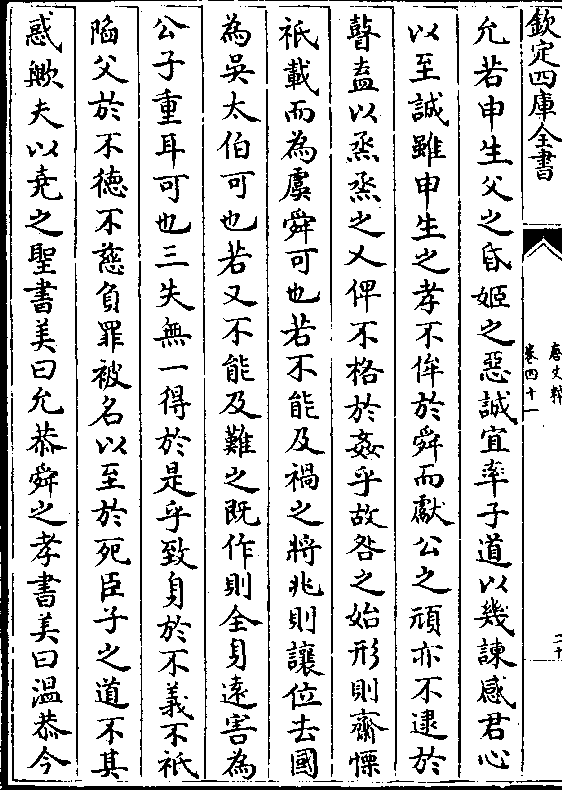 欽定四庫全書
唐文粹
卷四十一
二十
允若申生父之昏姬之惡誠宜率子道以幾諫感君心
以至誠雖申生之孝不侔於舜而獻公之頑亦不逮於
瞽盍以烝烝之乂俾不格於姦乎故咎之始形則齋慄
祇載而為虞舜可也若不能及禍之將兆則讓位去國
為吳太伯可也若又不能及難之既作則全身遠害為
公子重耳可也三失無一得於是乎致身於不義不祇
陷父於不德不慈負罪被名以至於死臣子之道不其
惑歟夫以堯之聖書美曰允恭舜之孝書美曰溫恭今